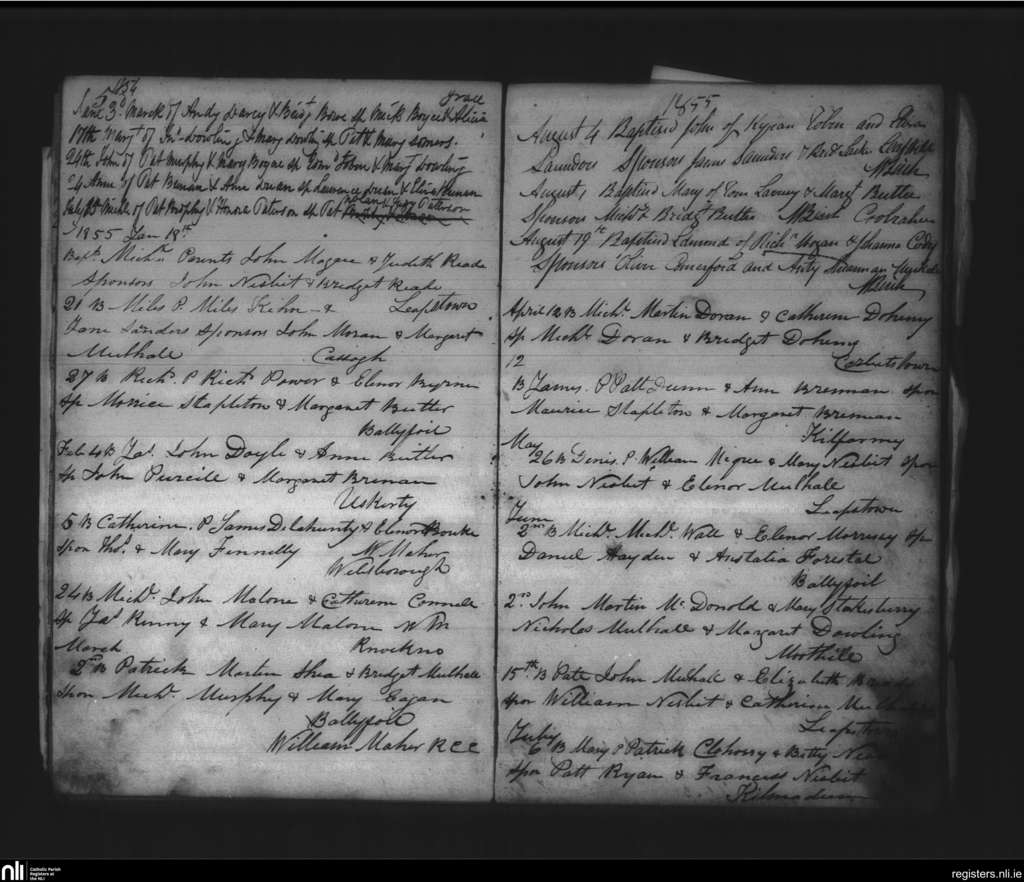 1854
Grace
3d of Andy Darcy & Bowe sp Mick Boyce & Alicia
17th Margt of Jno Dowling & Mary sp Pat & Mary
24th John of Pat Murphy & Mary Bogue sp Edmd Tobin & Margt Dowling
4 Anne of Pat & Anne sp Lawrence &
Mich of Pat Brophy & Honora Paterson sp Pat Nolan & Judy Paterson
1855 Jan 18th
Bapt. Parents John Magee & Judith Reade
Sponsors John Nesbit & Bridget Reade
21 B Miles P. Miles Kehoe & Leapstown
Jane Sanders Sponsors John Moran & Margaret
Mulhale Cassagh
27 B Richd. P Richd Power & Elenor Byrne
Sp Morrice Stapleton & Margaret Butler
Ballyfoil
Feb 4 B Jas. John Doyle & Anne Butler
Sp John Purcile & Margaret Brenan
Uskerty
5 B Catherine. P James Delahunty & Elenor Bourke
Spon Thos. & Mary Fennelly W Maher
Wilsborough
24 B Michl. John Malone & Catheren Connele
Sp Jas Kenny & Mary Malone W M
March Knockno
2nd B Patrick Martin Shea & Bridget Mulhale
Spon Michl. Murphy & Mary Eagan
Ballyfoile
William Maher R C C
1855
August 4 Baptized John of Kyran Tobin and
Saunders Sponsors James Saunders &
August, Baptized Mary of Edm & Margt Butler
Sponsors Michl & Bridgt Butler Coolraheen
August 19th Baptized Edmond of Richd Hogan & Johanna Cody
Sponsors Oliver Comerford and
April 12 B Michl. Martin Doran & Catheren Doheny
Sp Michl. Doran & Bridget Doheny
12 Corbetstown
B James. P Patt Dunn & Ann Brennan Spon
Maurice Stapleton & Margaret Brennan
Kilfarmy
May
26 B Denis. P. William Megree & Mary Nesbit Spon
John Nesbit & Elenor Mulhale
Leapstown
June
2nd B Michl. Michl. Wall & Elenor Morrissy Sp
Daniel Hayden & Anstatia Forestal
Ballyfoil
2nd John Martin McDonold & Mary Stakesberry
Nicholas Mulhall & Margaret Dowling
Mothile
15th B Pate John Mulhale & Elizabeth
Spon William Nesbit & Catherine
Leapstown
July
6 B Mary P Patrick Clohossy & Betty
Spon Patt Ryan & Frances Nesbit
Kilmadum
nli
Catholic Parish
Registers at
the NLI
registers.nli.ie